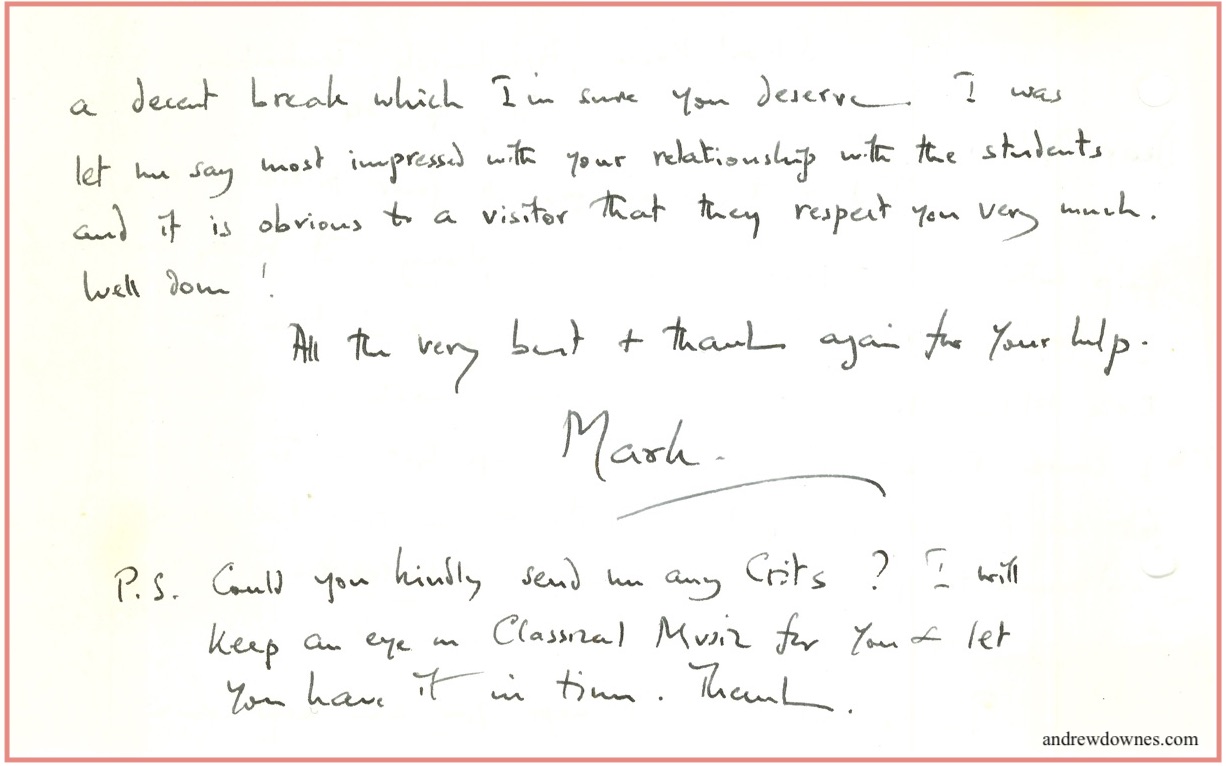 a decent break which I'm sure you deserve. I was
let me say most impressed with your relationship with the students
and it is obvious to a visitor that they respect you very much.
Well done !
All the very best + thanks again for your help.
Mark.
P.S. Could you kindly send me any Crits ? I will
keep an eye on Classical Music for you & let
you have it in time. Thanks.
andrewdownes.com